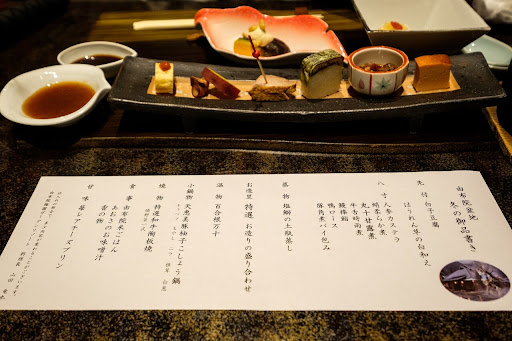 由布院盆地
冬の御品書き
先　付 白子豆腐
ほうれん草の白和え
八　寸 人参カステラ
蛸柔らか煮
丸十甘露煮
牛舌時雨煮
鰻棒鮨
鴨ロース
豚角煮パイ包み
蒸　物 塩鰤の土瓶蒸し
お造里 特選 お造りの盛り合わせ
温　物 百合根万十
小鍋物 天恵美豚柚子こしょう鍋
焼　物 特選和牛陶板焼
食　事 由布院米ごはん
あおさのお味噌汁
香の物
甘　味 苺レアチーズプリン
料理長　山田